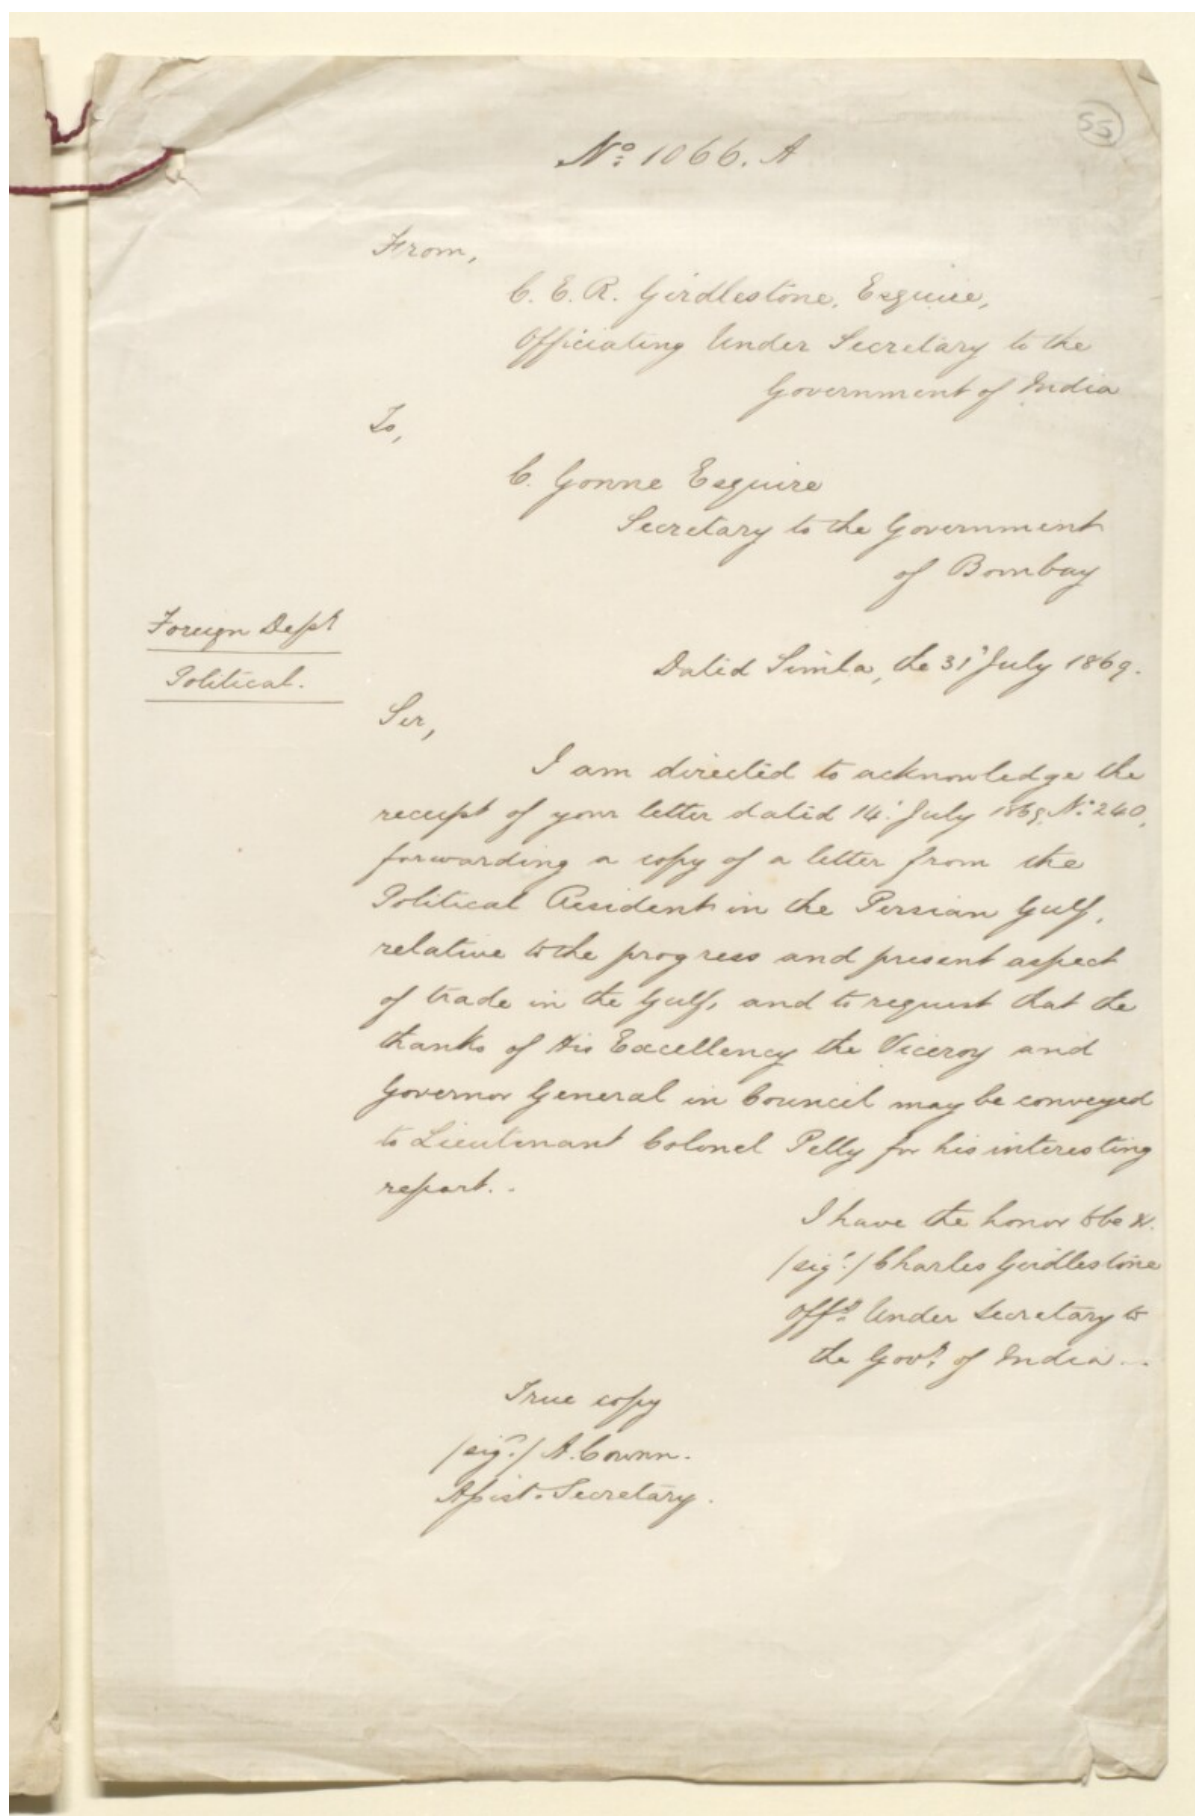 55
No: 1066. A
From,
C. E. R. Girdlestone, Esquire,
Officiating Under Secretary to the
Government of India
To,
C. Gonne Esquire
Secretary to the Government
of Bombay
Foreign Dept
Political.
Dated Simla, the 31st July 1869.
Sir,
I am directed to acknowledge the
receipt of your letter dated 14: July 1869 No: 240,
forwarding a copy of a letter from the
Political Resident in the Persian Gulf,
relative to the progress and present aspect
of trade in the Gulf, and to request that the
thanks of His Excellency the Viceroy and
Governor General in Council may be conveyed
to Lieutenant Colonel Pelly for his interesting
report..
I have the honor to be &.
/sigd:/ Charles Girdlestone
Offg: Under Secretary to
the Govt: of India...
True copy
/sigd:/ A.
Assist. Secretary.